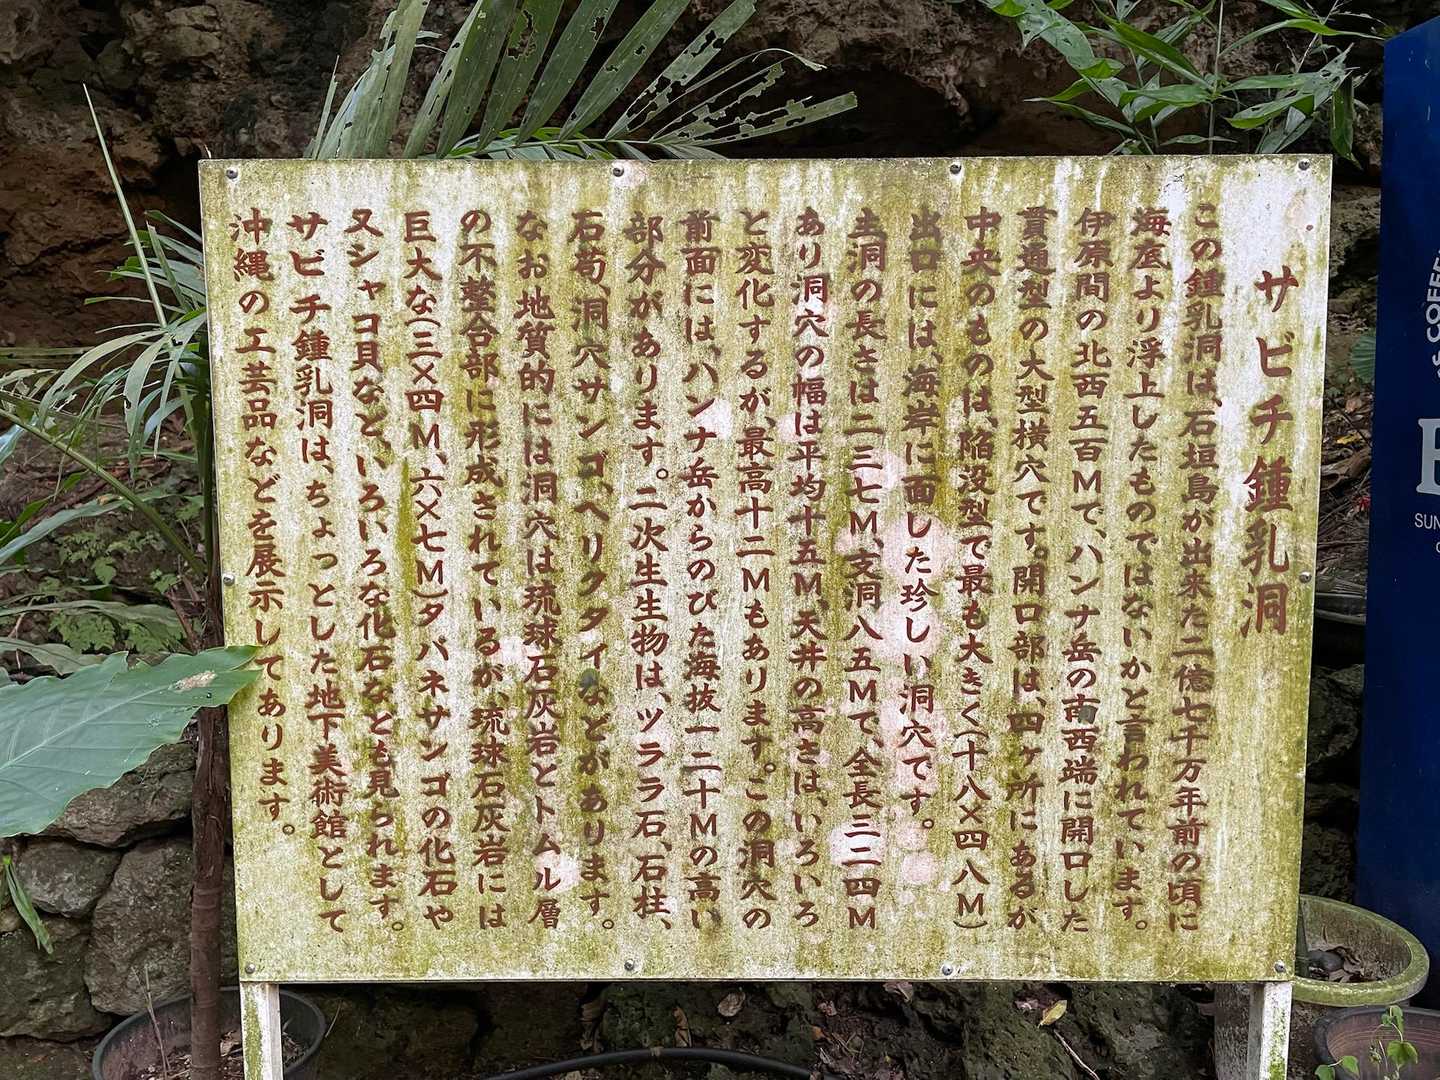 サビチ鍾乳洞
この鍾乳洞は、石垣島が出来た二億七千万年前の頃に
海底より浮上したものではないかと言われています。
伊原間の北西五百Mで、ハンナ岳の南西端に開口した
貫通型の大型横穴です。開口部は、四ヶ所にあるが
中央のものは、陥没型で最も大きく(十八×四八M)
出口には、海岸に面した珍しい洞穴です。
主洞の長さは二三七M、支洞八五Mで、全長三二四M
あり洞穴の幅は平均十五M、天井の高さは、いろいろ
と変化するが、最高十二Mもあります。この洞穴の
前面には、ハンナ岳からのびた海抜一二十Mの高い
部分があります。二次生生物は、ツララ石、石柱、
石筍、洞穴サンゴ、ヘリクタイなどがあります。
なお地質的には洞穴は琉球石灰岩とトムル層
の不整合部に形成されているが、琉球石灰岩には
巨大な(三×四M、六×七M)タバネサンゴの化石や
又シャコ貝など、いろいろな化石なども見られます。
サビチ鍾乳洞は、ちょっとした地下美術館として
沖縄の工芸品などを展示してあります。
COFFEE
SUN